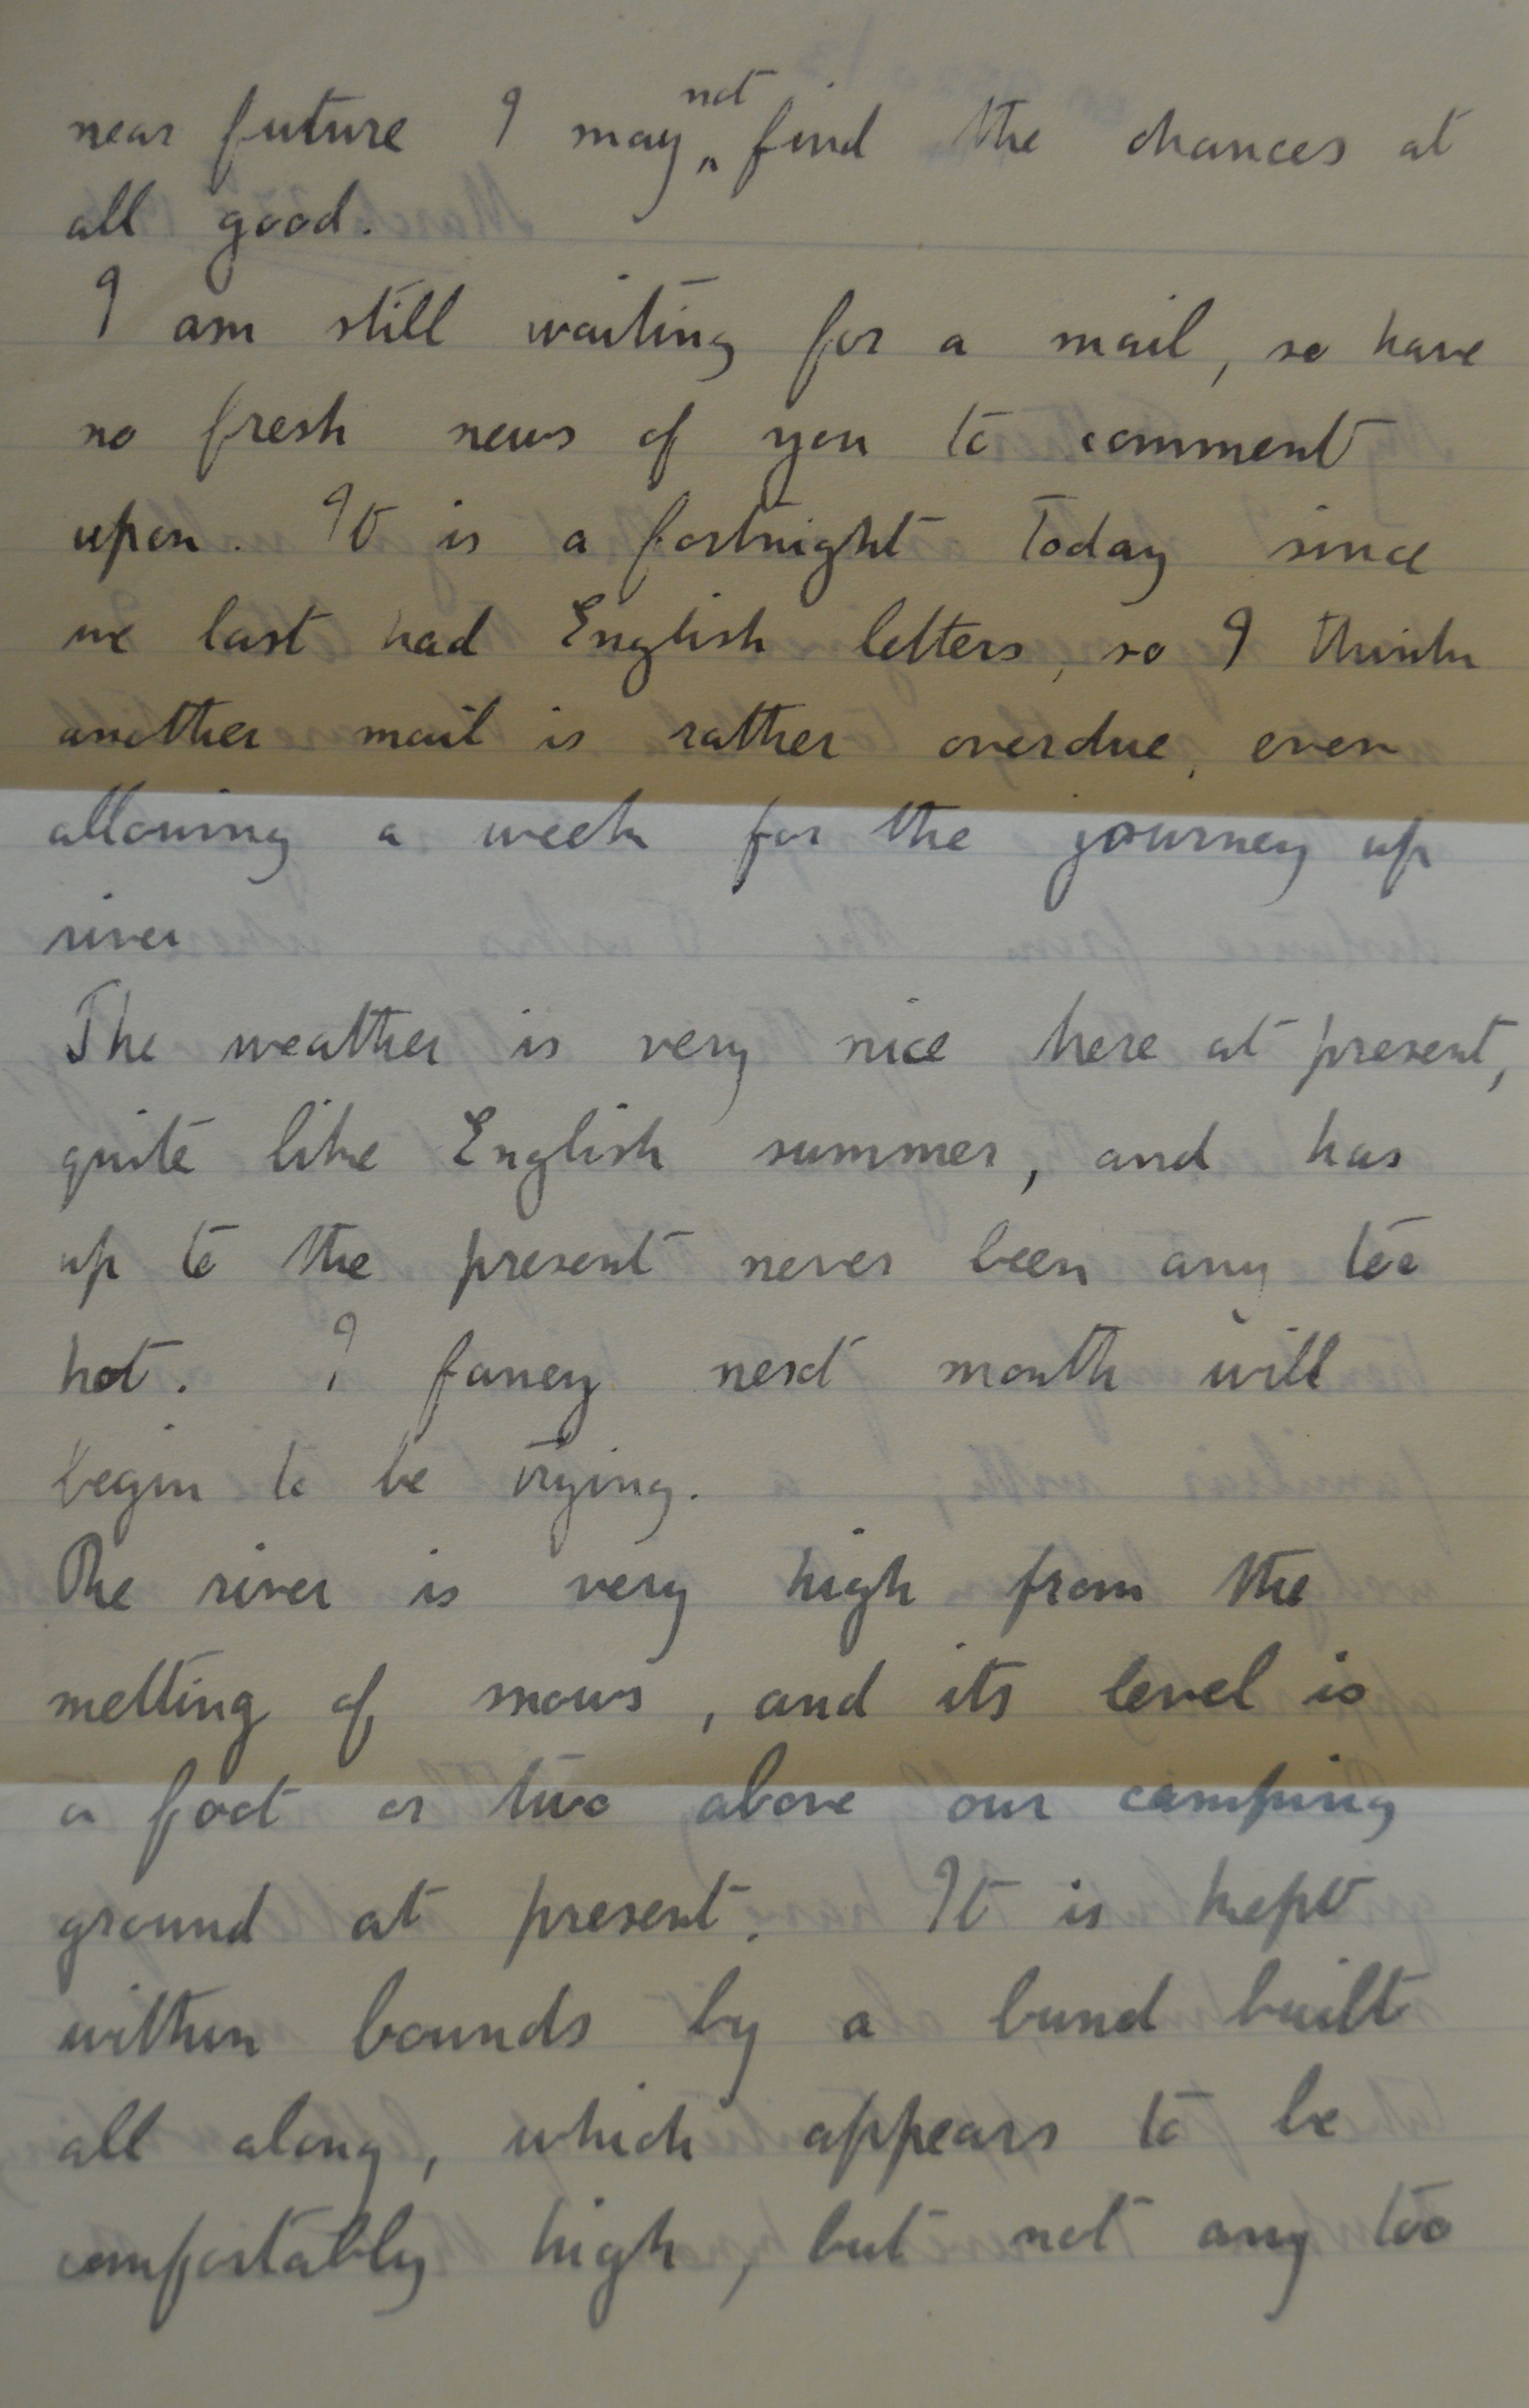 near future I may not find the chances at
all good.
I am still waiting for a mail, so have
no fresh news of you to comment
upon. It is a fortnight today since
we last had English letters, so I think
another mail is rather overdue, even
allowing a week for the journey up
river
The weather is very nice here at present,
quite like English summer, and has
up to the present never been any too
hot. I fancy next month will
begin to be trying.
The river is very high from the
melting of snows, and its level is
a foot or two above our camping
ground at present. It is kept
within bounds by a bund built
all along, which appears to be
comfortably high, but not any too